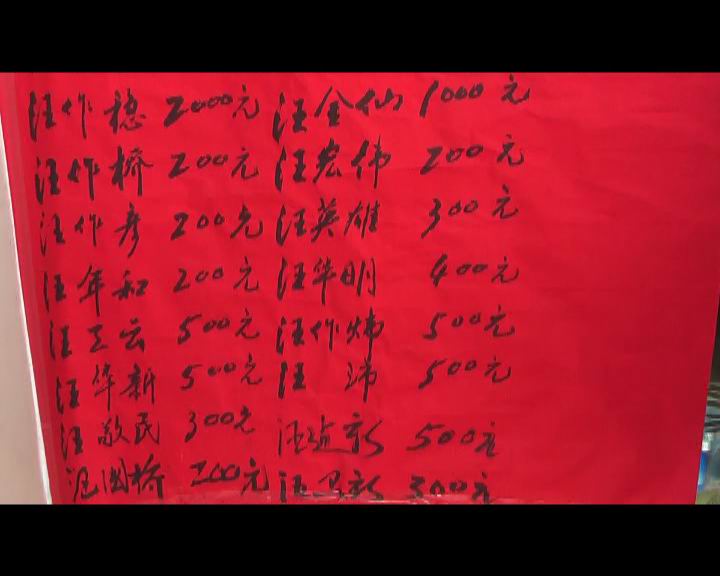 汪作稳 2000元 汪金仙 1000元
汪作桥 200元 汪宏伟 200元
汪作彦 200元 汪英雄 300元
汪年和 200元 汪华明 400元
汪工云 500元 汪作炜 500元
汪华新 500元 汪沛 500元
汪敬民 300元 汪新 500元
国桥 200元 汪卫新 300元